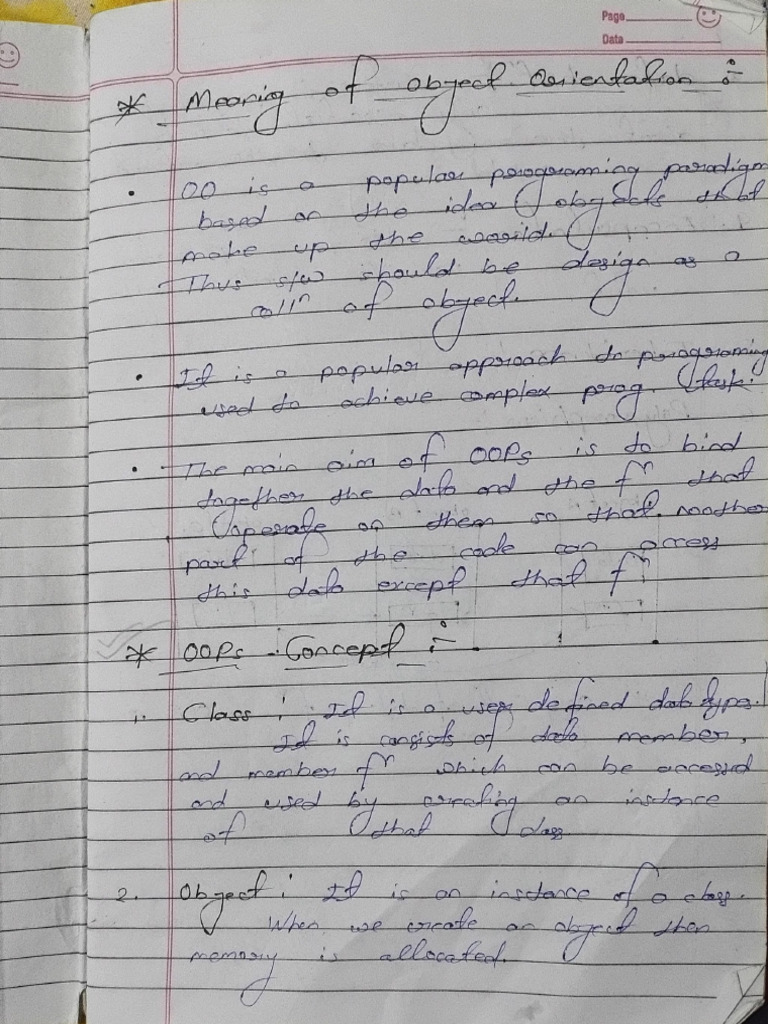 Page
Date
* Meaning of object Orientation :-
• OO is a popular programming paradigm
based on the idea objects that
make up the world.
Thus s/w should be design as a
collⁿ of object.
• It is a popular approach to programming
used to achieve complex prog. task.
• The main aim of OOPs is to bind
together the data and the fⁿ that
operate on them so that no other
part of the code can access
this data except that fⁿ
* OOPs - Concept :-
1. Class : It is a user defined data types.
It is consists of data member,
and member fⁿ which can be accessed
and used by creating an instance
of that class
2. Object : It is an instance of a class.
When we create an object then
memory is allocated.